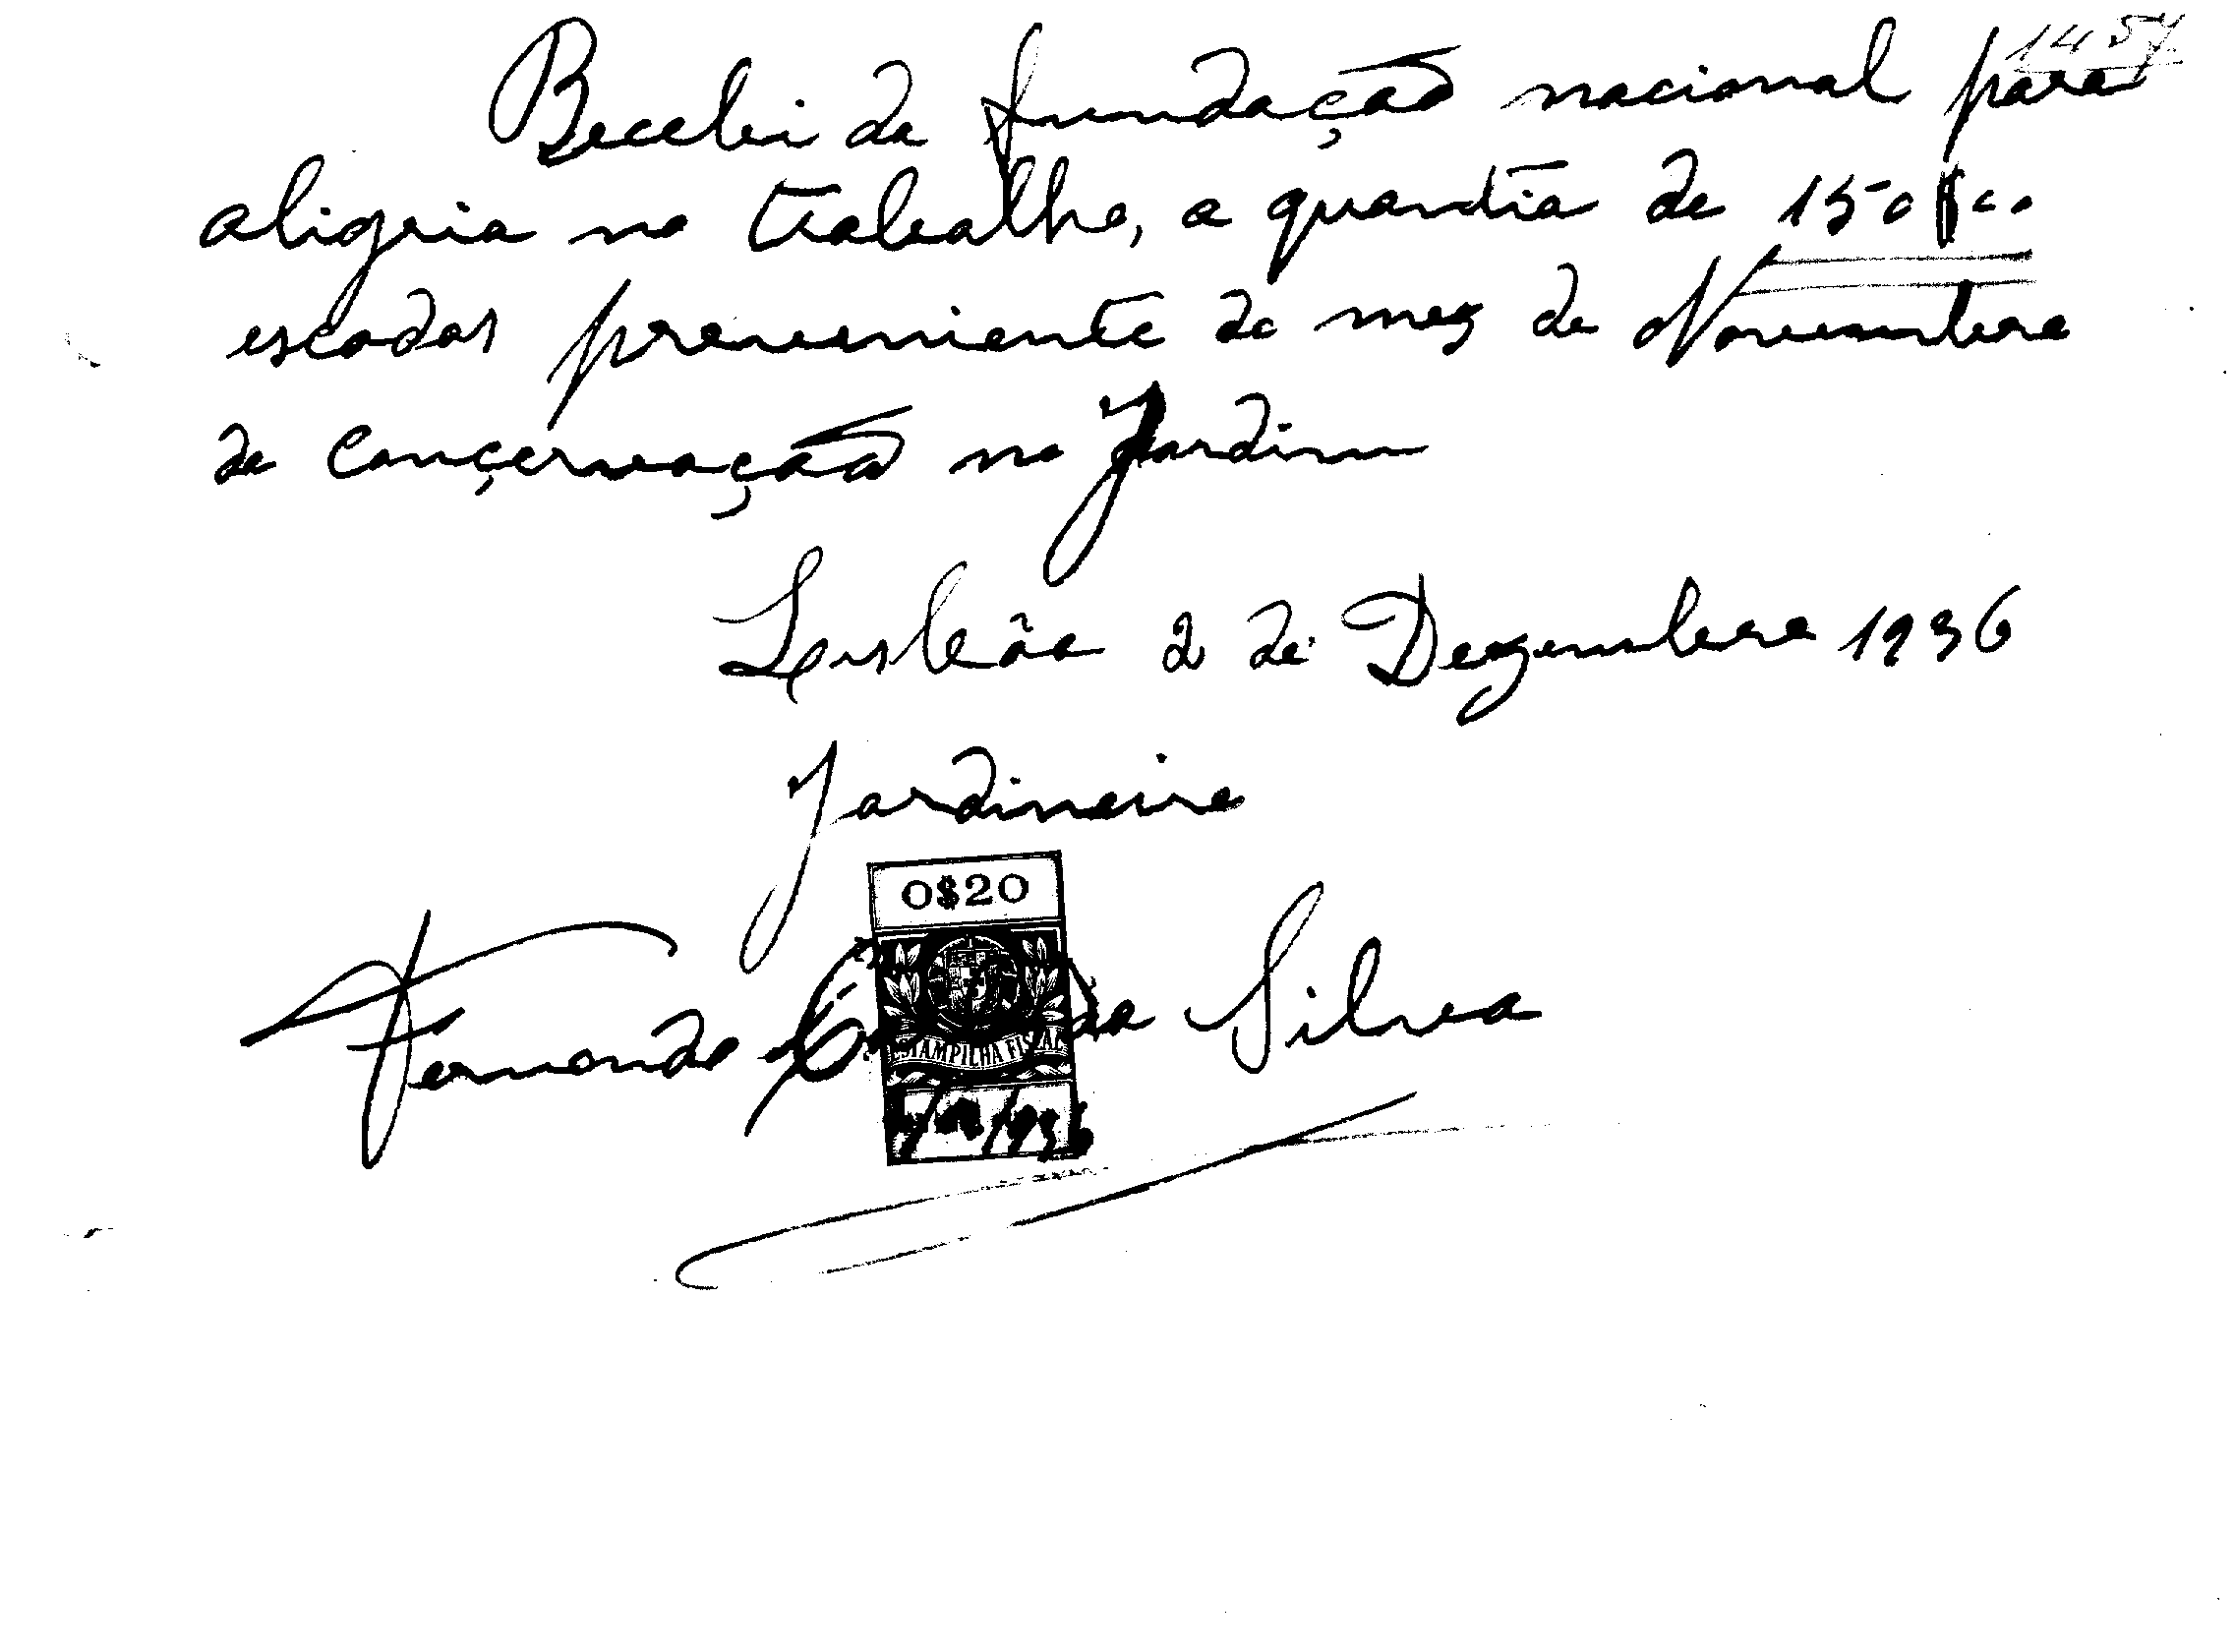 1457
Recebi da fundação nacional para
aligria no trabalho, a quantia de 150$00
escodos proveniente do mez de Novembro
da conçervação no Jardim
Lisbôa 2 de Dezembro 1936
Jardineiro
0$20
Fernando da Silva
ESTAMPILHA FISCAL